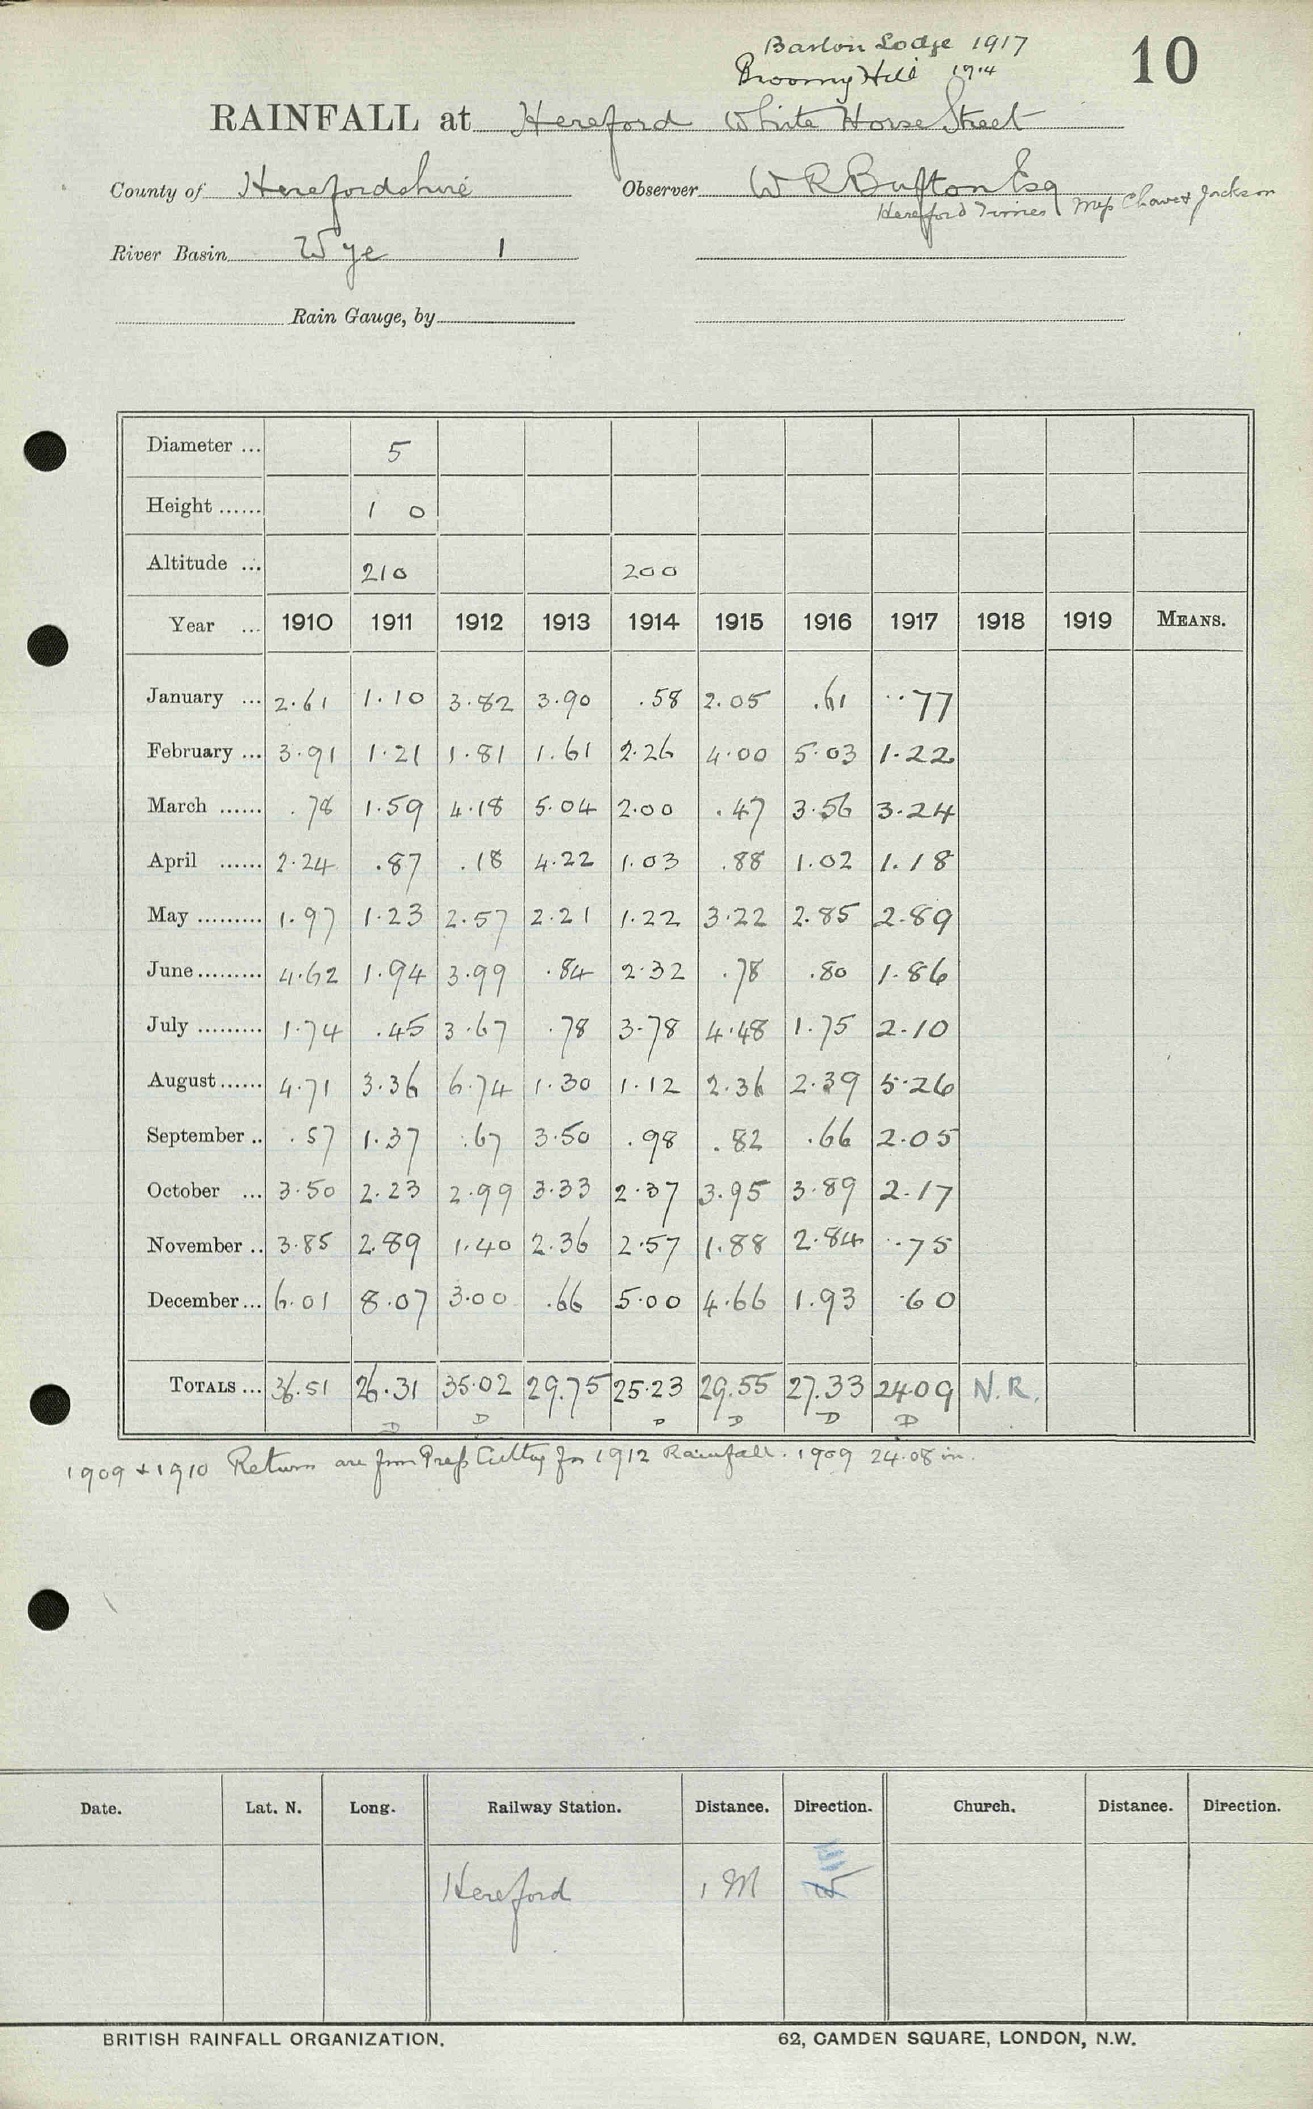 Barton Lodge 1917
Broomy Hill 1914
10
RAINFALL at Hereford White Horse Street
County of Herefordshire Observer W R Bufton Esq
Hereford Times Jackson
River Basin Wye 1
Rain Gauge, by
Diameter ... 5
Height ...... 1 0
Altitude ... 210 200
Year ... 1910 1911 1912 1913 1914 1915 1916 1917 1918 1919 MEANS.
January ... 2.61 1.10 3.82 3.90 .58 2.05 .61 .77
February ... 3.91 1.21 1.81 1.61 2.26 4.00 5.03 1.22
March ...... .78 1.59 4.18 5.04 2.00 .47 3.56 3.24
April ...... 2.24 .87 .18 4.22 1.03 .88 1.02 1.18
May ......... 1.97 1.23 2.57 2.21 1.22 3.22 2.85 2.89
June ......... 4.62 1.94 3.99 .84 2.32 .78 .80 1.86
July ......... 1.74 .45 3.67 .78 3.78 4.48 1.75 2.10
August ...... 4.71 3.36 6.74 1.30 1.12 2.36 2.39 5.26
September .. .57 1.37 .67 3.50 .98 .82 .66 2.05
October ... 3.50 2.23 2.99 3.33 2.37 3.95 3.89 2.17
November .. 3.85 2.89 1.40 2.36 2.57 1.88 2.84 .75
December ... 6.01 8.07 3.00 .66 5.00 4.66 1.93 .60
TOTALS ... 36.51 26.31 35.02 29.75 25.23 29.55 27.33 24.09 N.R.
D D D D D D
1909 + 1910 Return are from Press Cutting for 1912 Rainfall. 1909 24.08 in.
Date. Lat. N. Long. Railway Station. Distance. Direction. Church. Distance. Direction.
Hereford 1 M
BRITISH RAINFALL ORGANIZATION. 62, CAMDEN SQUARE, LONDON, N.W.